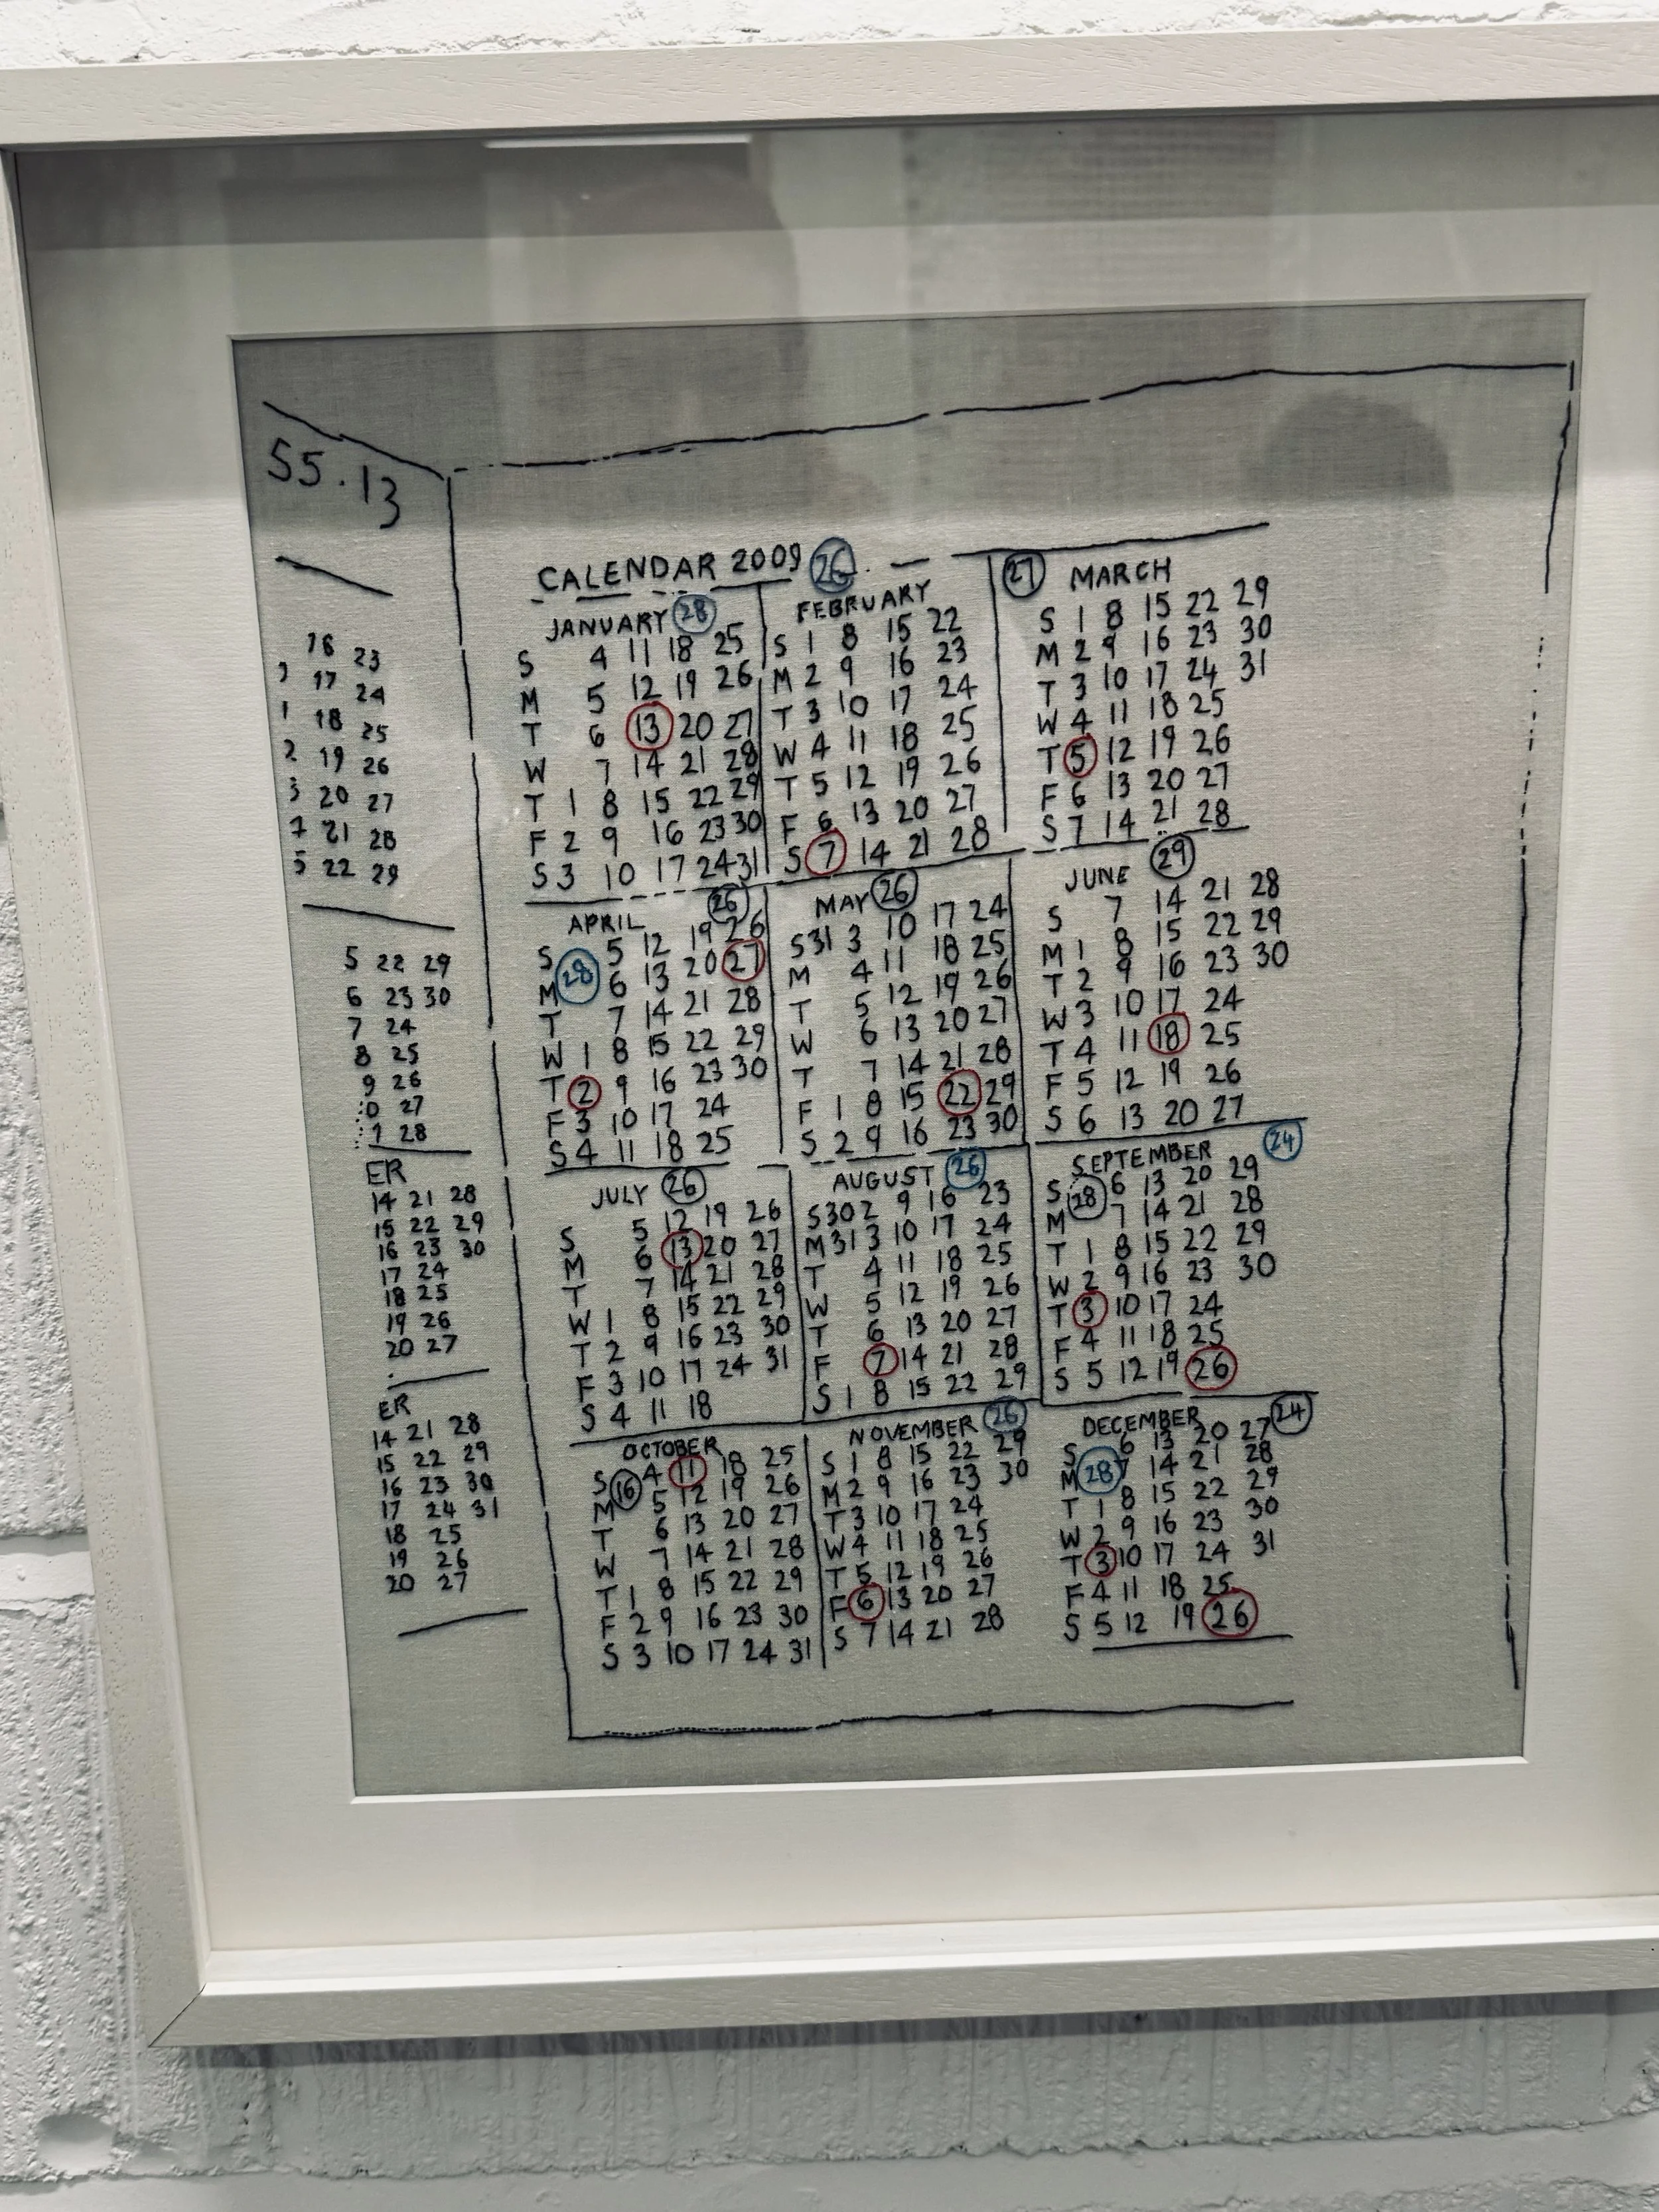 S5.13
16 23
17 24
18 25
2 19 26
3 20 27
21 28
5 22 29
5 22 29
6 23 30
7 24
8 25
9 26
0 27
1 28
ER
14 21 28
15 22 29
16 23 30
17 24
18 25
19 26
20 27
ER
14 21 28
15 22 29
16 23 30
17 24 31
18 25
19 26
20 27
CALENDAR 2009 26
JANUARY 28
S 4 11 18 25
M 5 12 19 26
T 6 13 20 27
W 7 14 21 28
T 1 8 15 22 29
F 2 9 16 23 30
S 3 10 17 24 31
FEBRUARY
S 1 8 15 22
M 2 9 16 23
T 3 10 17 24
W 4 11 18 25
T 5 12 19 26
F 6 13 20 27
S 7 14 21 28
27 MARCH
S 1 8 15 22 29
M 2 9 16 23 30
T 3 10 17 24 31
W 4 11 18 25
T 5 12 19 26
F 6 13 20 27
S 7 14 21 28
APRIL 26
S 5 12 19 26
28
M 6 13 20 27
T 7 14 21 28
W 1 8 15 22 29
T 2 9 16 23 30
F 3 10 17 24
S 4 11 18 25
MAY 26
S 31 3 10 17 24
M 4 11 18 25
T 5 12 19 26
W 6 13 20 27
T 7 14 21 28
F 1 8 15 22 29
S 2 9 16 23 30
JUNE 29
S 7 14 21 28
M 1 8 15 22 29
T 2 9 16 23 30
W 3 10 17 24
T 4 11 18 25
F 5 12 19 26
S 6 13 20 27
JULY 26
S 5 12 19 26
M 6 13 20 27
T 7 14 21 28
W 1 8 15 22 29
T 2 9 16 23 30
F 3 10 17 24 31
S 4 11 18
AUGUST 26
S 30 2 9 16 23
M 31 3 10 17 24
T 4 11 18 25
W 5 12 19 26
T 6 13 20 27
F 7 14 21 28
S 1 8 15 22 29
SEPTEMBER 24
S 6 13 20 29
28
M 7 14 21 28
T 1 8 15 22 29
W 2 9 16 23 30
T 3 10 17 24
F 4 11 18 25
S 5 12 19 26
OCTOBER
S 4 11 18 25
16
M 5 12 19 26
T 6 13 20 27
W 7 14 21 28
T 1 8 15 22 29
F 2 9 16 23 30
S 3 10 17 24 31
NOVEMBER 26
S 1 8 15 22 29
M 2 9 16 23 30
T 3 10 17 24
W 4 11 18 25
T 5 12 19 26
F 6 13 20 27
S 7 14 21 28
DECEMBER 24
S 6 13 20 27
28
M 7 14 21 28
T 1 8 15 22 29
W 2 9 16 23 30
T 3 10 17 24 31
F 4 11 18 25
S 5 12 19 26